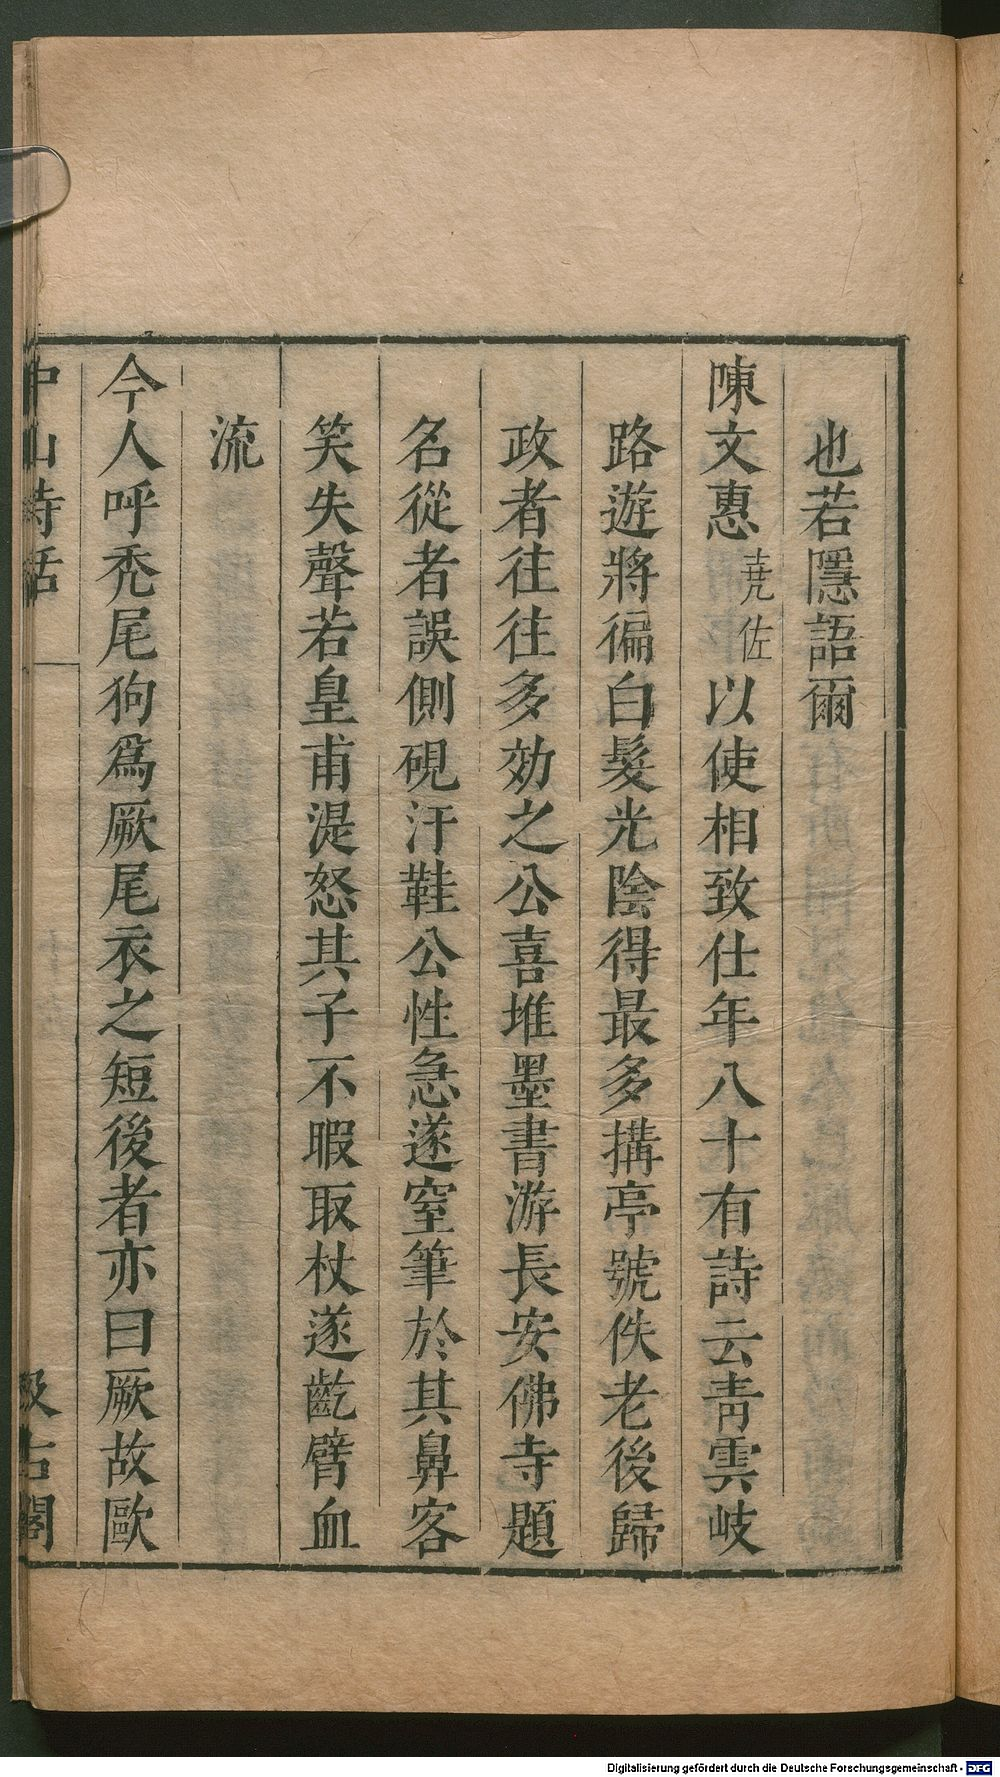 也若隱語爾
陳文惠堯佐以使相致仕年八十有詩云青雲岐
路遊將徧白髮光陰得最多搆亭號佚老後歸
政者往往多効之公喜堆墨書游長安佛寺題
名從者誤側硯汙鞋公性急遂窒筆於其鼻客
笑失聲若皇甫湜怒其子不暇取杖遂齕臂血
流
今人呼禿尾狗爲厥尾衣之短後者亦曰厥故歐
中山詩話
汲古閣
Digitalisierung gefördert durch die Deutsche Forschungsgemeinschaft - DFG